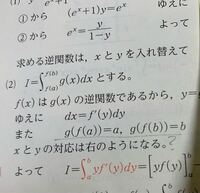 ①から (eˣ+1)y=eˣ
②から eˣ=y/(1-y) よって
求める逆関数は，xとyを入れ替えて
(2) I=∫_{f(a)}^{f(b)} g(x)dx とする。
f(x)はg(x)の逆関数であるから，y=
ゆえに dx=f'(y)dy
また g(f(a))=a, g(f(b))=b
xとyの対応は右のようになる。
よって I=∫_a^b yf'(y)dy=[yf(y)]